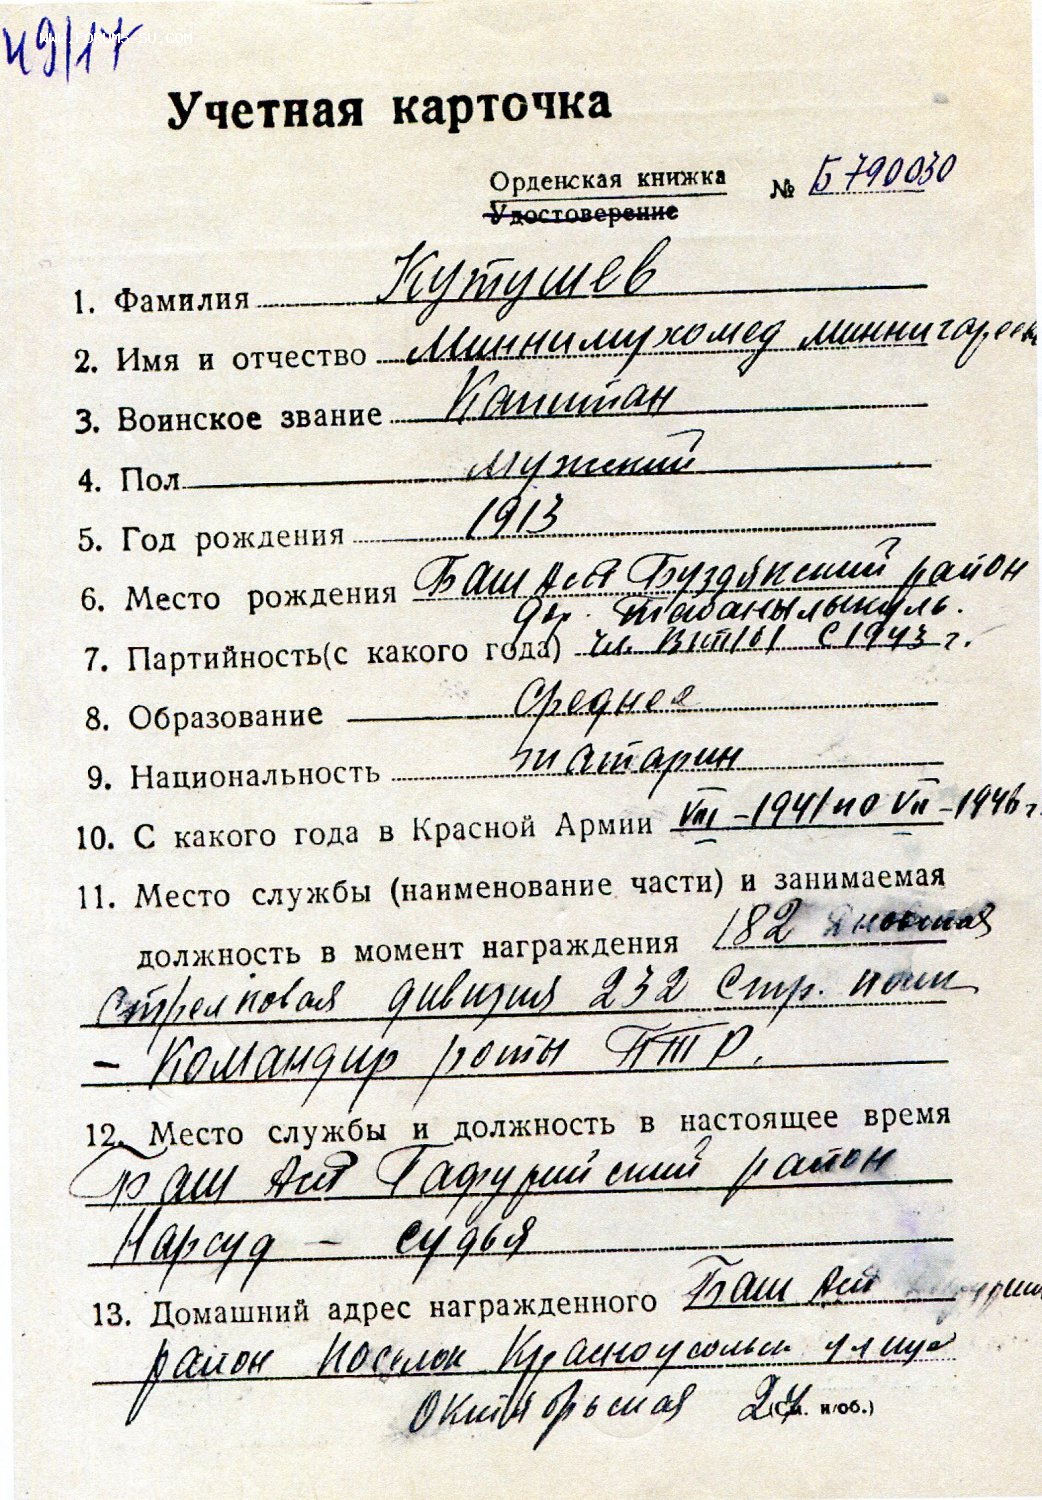 49/17
Учетная карточка
Орденская книжка № Б 790030
Удостоверение
1. Фамилия Кутушев
2. Имя и отчество Миннимухомед Миннигареев
3. Воинское звание Капитан
4. Пол мужский
5. Год рождения 1913
6. Место рождения Баш АССР Буздякский район
дер. Табанлыкуль.
7. Партийность(с какого года) чл. ВКП/б/ с 1943 г.
8. Образование Среднее
9. Национальность татарин
10. С какого года в Красной Армии VIII – 1941 по VII – 1946 г.
11. Место службы (наименование части) и занимаемая
должность в момент награждения 182 Дновская
Стрелковая дивизия 232 Стр. полк
– Командир роты ПТР.
12. Место службы и должность в настоящее время
Баш АССР Гафурийский район
Нарсуд – судья
13. Домашний адрес награжденного Баш АССР
район поселок Красноусольск улица
Октябрьская 24 (См. н/об.)